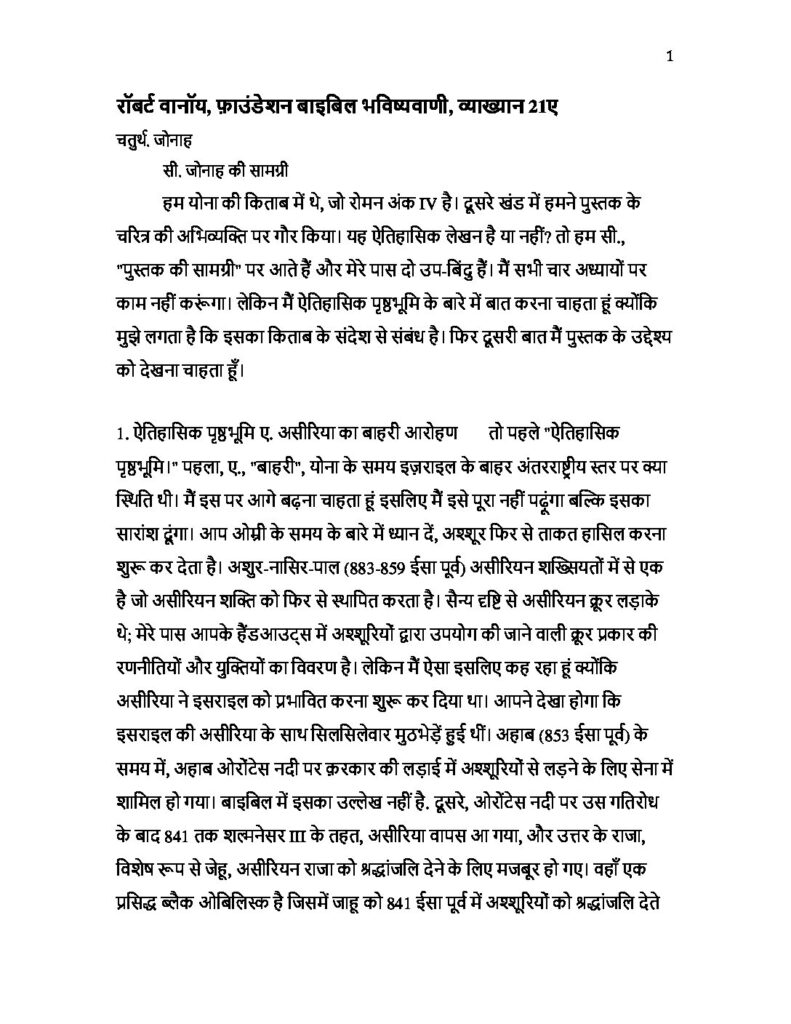 1
रॉबर्ट वानॉय, फ़ाउंडेशन बाइबिल भविष्यवाणी, व्याख्यान 21ए
चतुर्थ. जोनाह
सी. जोनाह की सामग्री
हम योना की किताब में थे, जो रोमन अंक IV है। दूसरे खंड में हमने पुस्तक के
चरित्र की अभिव्यक्ति पर गौर किया। यह ऐतिहासिक लेखन है या नहीं? तो हम सी.,
"पुस्तक की सामग्री" पर आते हैं और मेरे पास दो उप-बिंदु हैं। मैं सभी चार अध्यायों पर
काम नहीं करूंगा। लेकिन मैं ऐतिहासिक पृष्ठभूमि के बारे में बात करना चाहता हूं क्योंकि
मुझे लगता है कि इसका किताब के संदेश से संबंध है। फिर दूसरी बात मैं पुस्तक के उद्देश्य
को देखना चाहता हूँ।
1. ऐतिहासिक पृष्ठभूमि ए. असीरिया का बाहरी आरोहण तो पहले "ऐतिहासिक
पृष्ठभूमि।" पहला, ए., "बाहरी", योना के समय इज़राइल के बाहर अंतरराष्ट्रीय स्तर पर क्या
स्थिति थी। मैं इस पर आगे बढ़ना चाहता हूं इसलिए मैं इसे पूरा नहीं पढ़ूंगा बल्कि इसका
सारांश दूंगा। आप ओम्री के समय के बारे में ध्यान दें, अश्शूर फिर से ताकत हासिल करना
शुरू कर देता है। अशुर-नासिर-पाल (883-859 ईसा पूर्व) असीरियन शख्सियतों में से एक
है जो असीरियन शक्ति को फिर से स्थापित करता है। सैन्य दृष्टि से असीरियन क्रूर लड़ाके
थे; मेरे पास आपके हैंडआउट्स में अश्शूरियों द्वारा उपयोग की जाने वाली क्रूर प्रकार की
रणनीतियों और युक्तियों का विवरण है। लेकिन मैं ऐसा इसलिए कह रहा हूं क्योंकि
असीरिया ने इसराइल को प्रभावित करना शुरू कर दिया था। आपने देखा होगा कि
इसराइल की असीरिया के साथ सिलसिलेवार मुठभेड़ें हुई थीं। अहाब (853 ईसा पूर्व) के
समय में, अहाब ओरोंटेस नदी पर क़रकार की लड़ाई में अश्शूरियों से लड़ने के लिए सेना में
शामिल हो गया। बाइबिल में इसका उल्लेख नहीं है. दूसरे, ओरोंटेस नदी पर उस गतिरोध
के बाद 841 तक शल्मनेसर III के तहत, असीरिया वापस आ गया, और उत्तर के राजा,
विशेष रूप से जेहू, असीरियन राजा को श्रद्धांजलि देने के लिए मजबूर हो गए। वहाँ एक
प्रसिद्ध ब्लैक ओबिलिस्क है जिसमें जाहू को 841 ईसा पूर्व में अश्शूरियों को श्रद्धांजलि देते